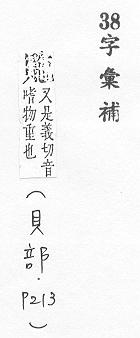 38字彙補
又是義切音
嗜物重也
(貝部.
P213)